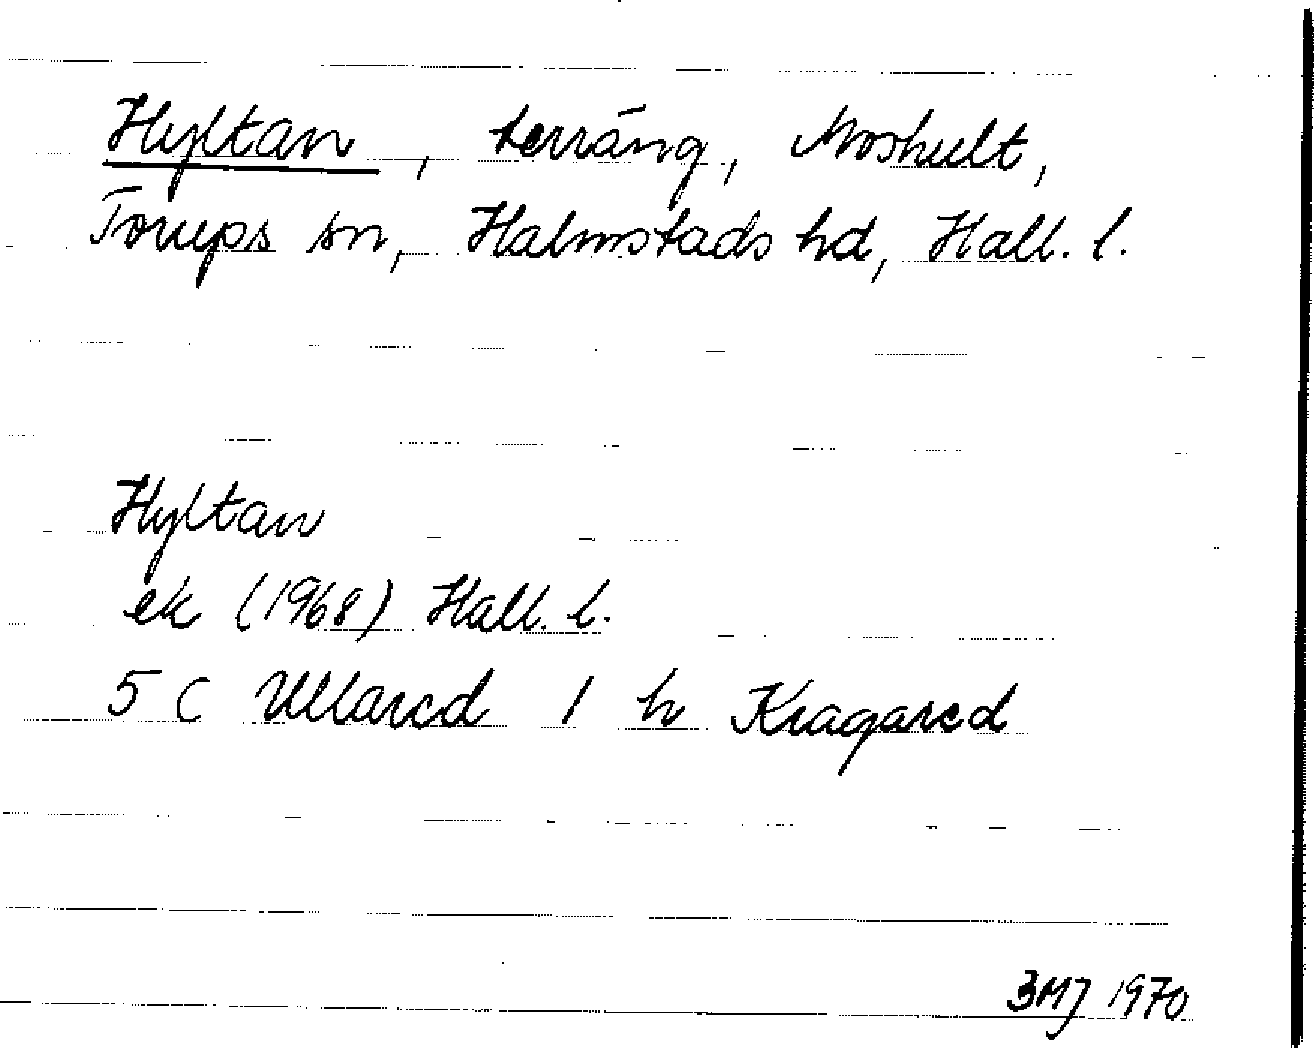 Hyltan, terräng, Moshult,
Torups sn, Halmstads hd, Hall. l.
Hyltan
ek (1968) Hall. l.
5 C Ullared 1 h Kragared
BMJ 1970